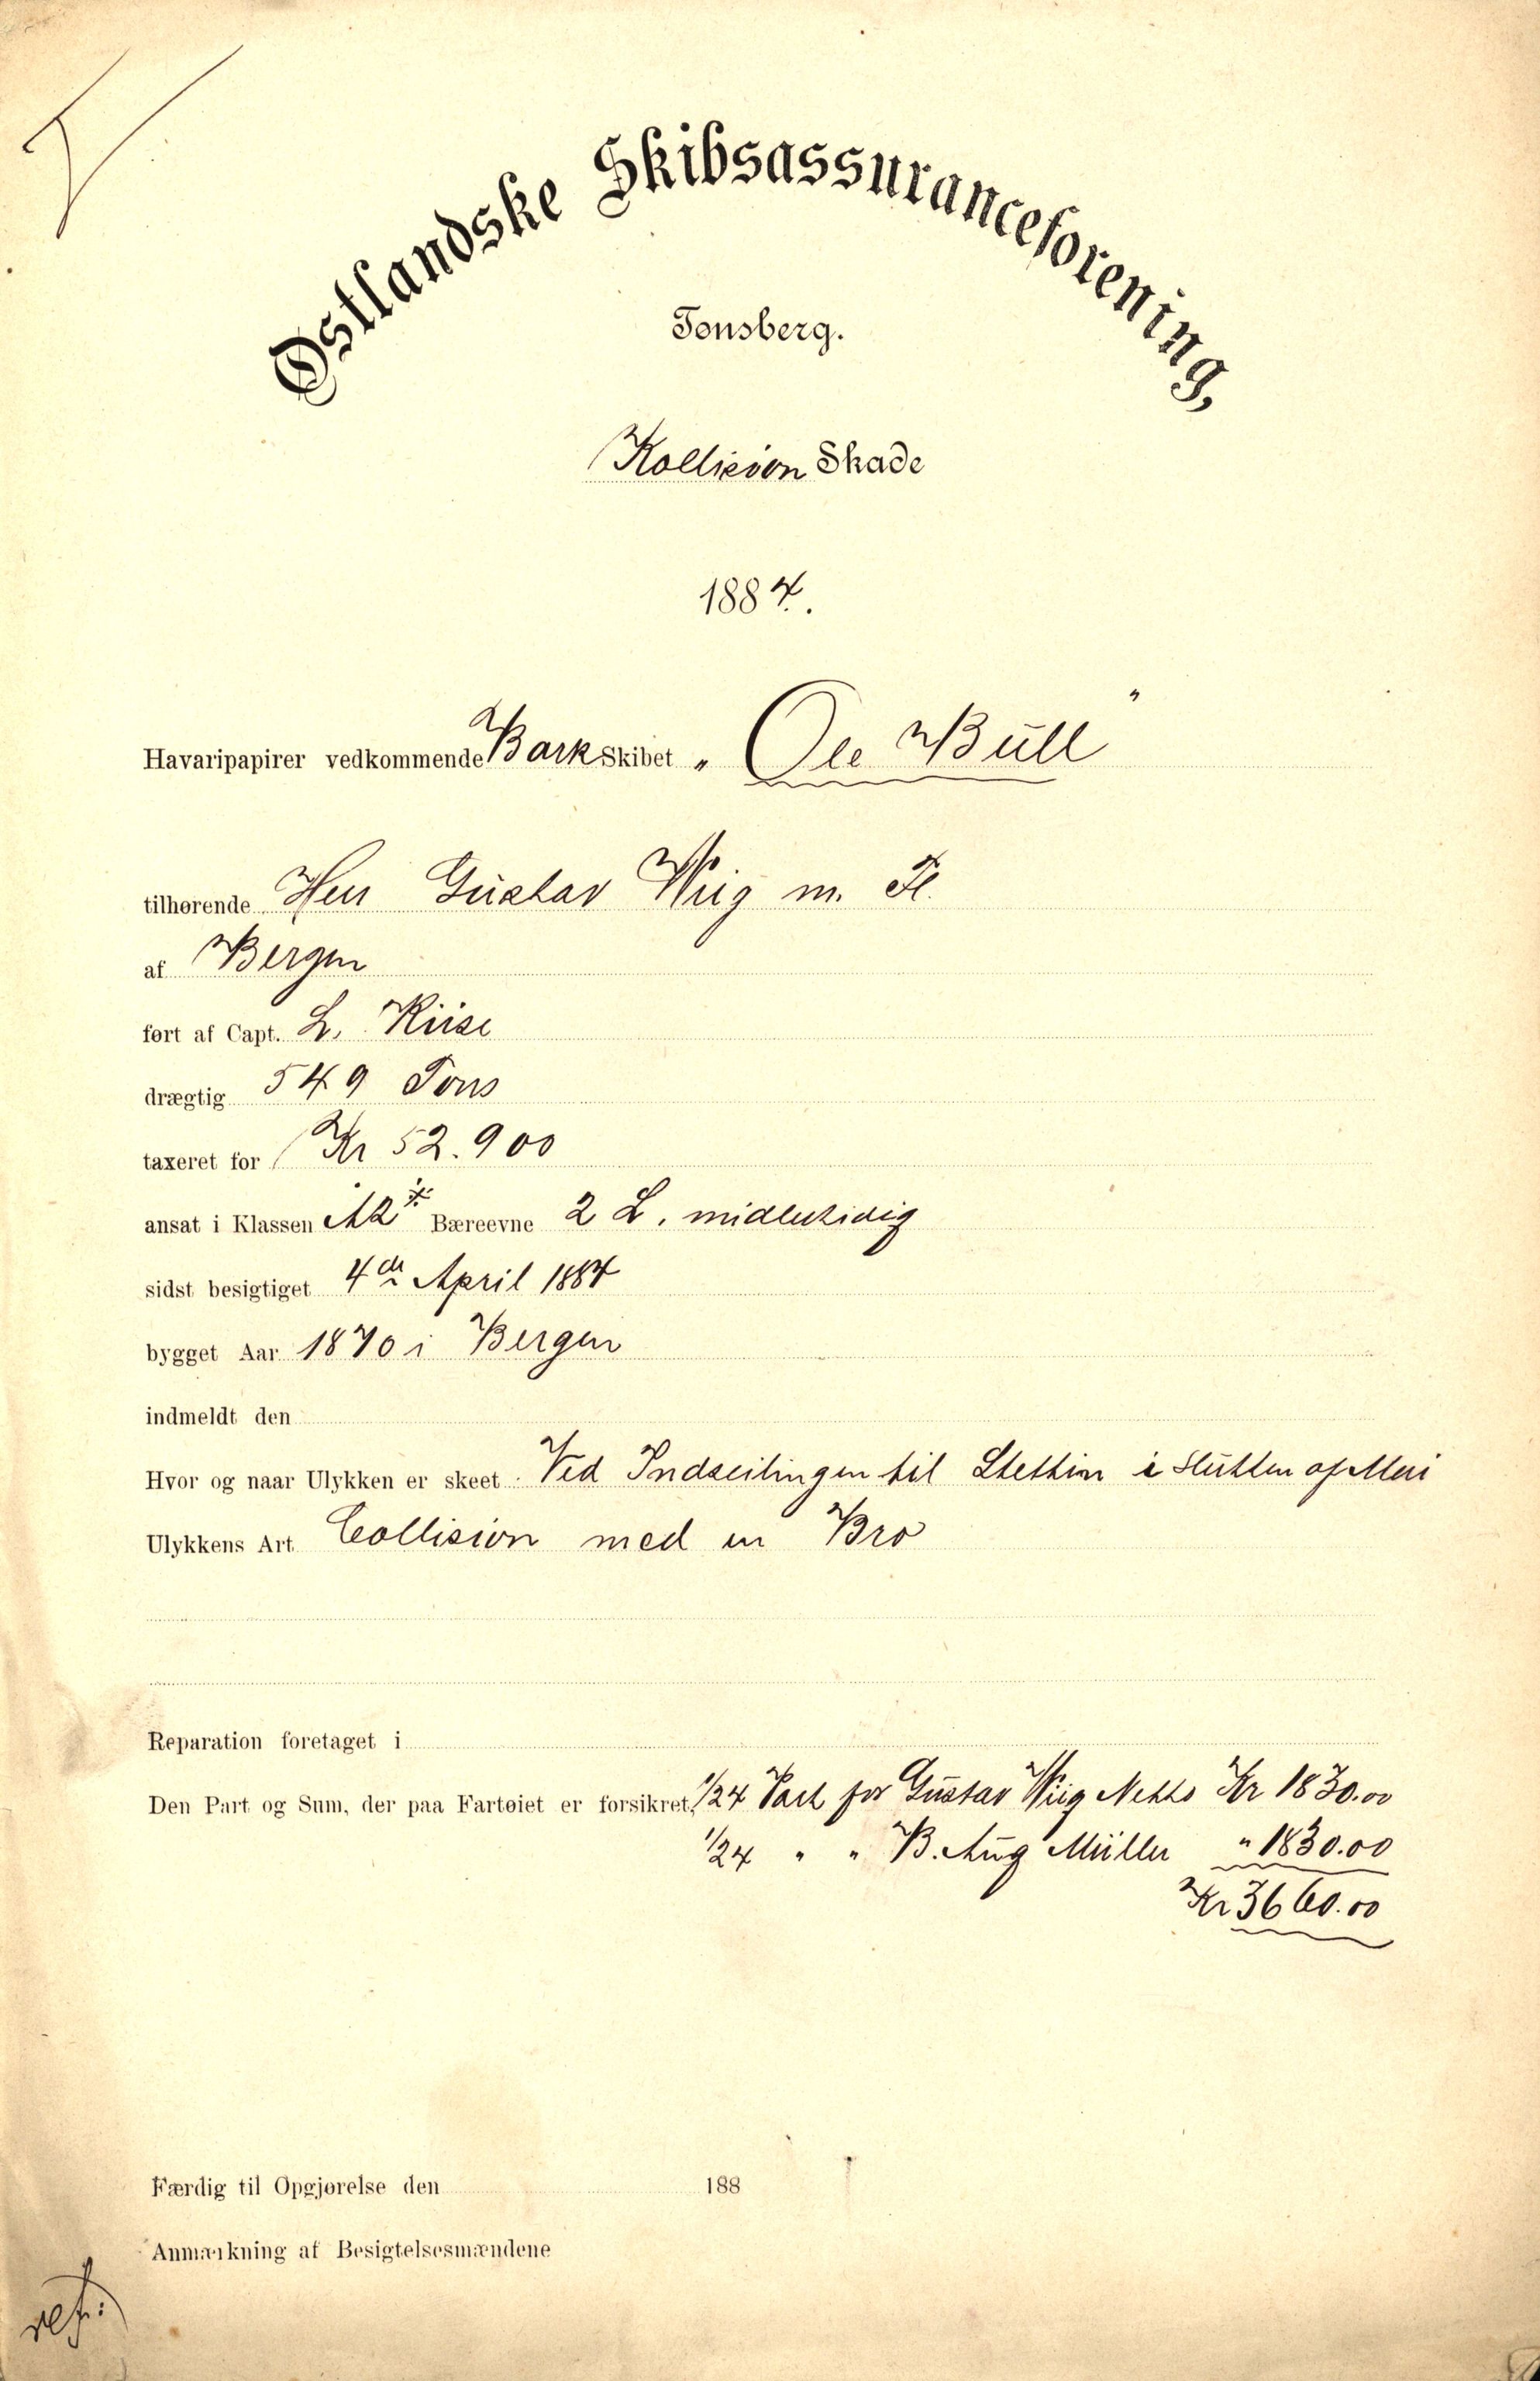 Østlandske Skibsassuranceforening,
Tønsberg.
Kollision Skade
1884.
Havaripapirer vedkommende Bark Skibet „Ole Bull"
tilhørende Herr Gustav Wiig m. Fl.
af Bergen
ført af Capt. L. Riise
drægtig 549 Tons
taxeret for Kr 52.900
ansat i Klassen A2 Bæreevne 2 L. midlertidig
sidst besigtiget 4de April 1884
bygget Aar 1870 i Bergen
indmeldt den
Hvor og naar Ulykken er skeet Ved Indseilingen til Stettin i Slutten af Mai
Ulykkens Art Collision med en Bro
Reparation foretaget i
Den Part og Sum, der paa Fartøiet er forsikret, 1/24 Part for Gustav Wiig Netto Kr 1830.00
1/24 " " B. Aug Müller " 1830.00
Kr 3660.00
Færdig til Opgjørelse den 188
Anmærkning af Besigtelsesmændene
ref: